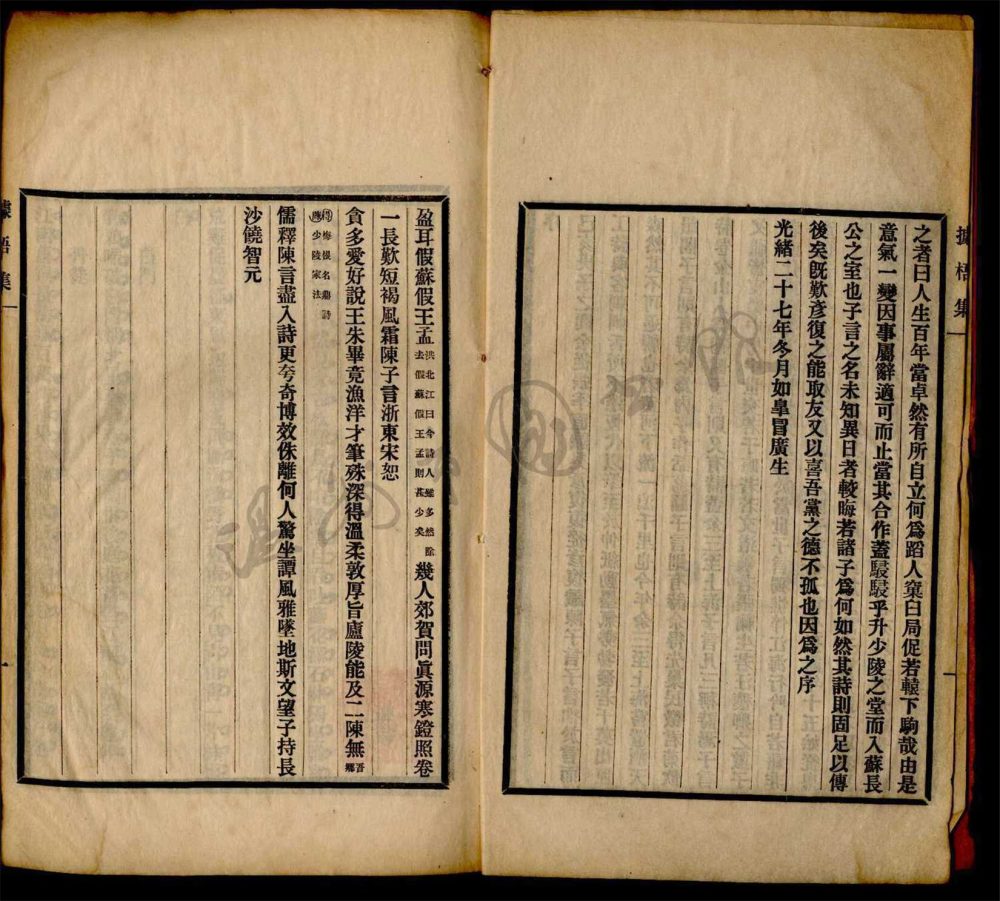 據梧集
之者曰人生百年當卓然有所自立何爲蹈人窠臼局促若轅下駒哉由是
意氣一變因事屬辭適可而止當其合作蓋駸駸乎升少陵之堂而入蘇長
公之室也子言之名未知異日者較晦若諸子爲何如然其詩則固足以傳
後矣旣歎彥復之能取友又以喜吾黨之德不孤也因爲之序
光緒二十七年冬月如皐冒廣生
盈耳假蘇假王孟洪北江曰今詩人雖多然除去假蘇假王孟則甚少矣幾人郊賀問眞源寒鐙照卷
一長歎短褐風霜陳子言浙東宋恕
貪多愛好說王朱畢竟漁洋才筆殊深得溫柔敦厚旨廬陵能及二陳無吾鄉
梅根名鼎詩少陵家法
儒釋陳言盡入詩更夸奇博效侏離何人驚坐譚風雅墜地斯文望子持長
沙饒智元
據梧集
一